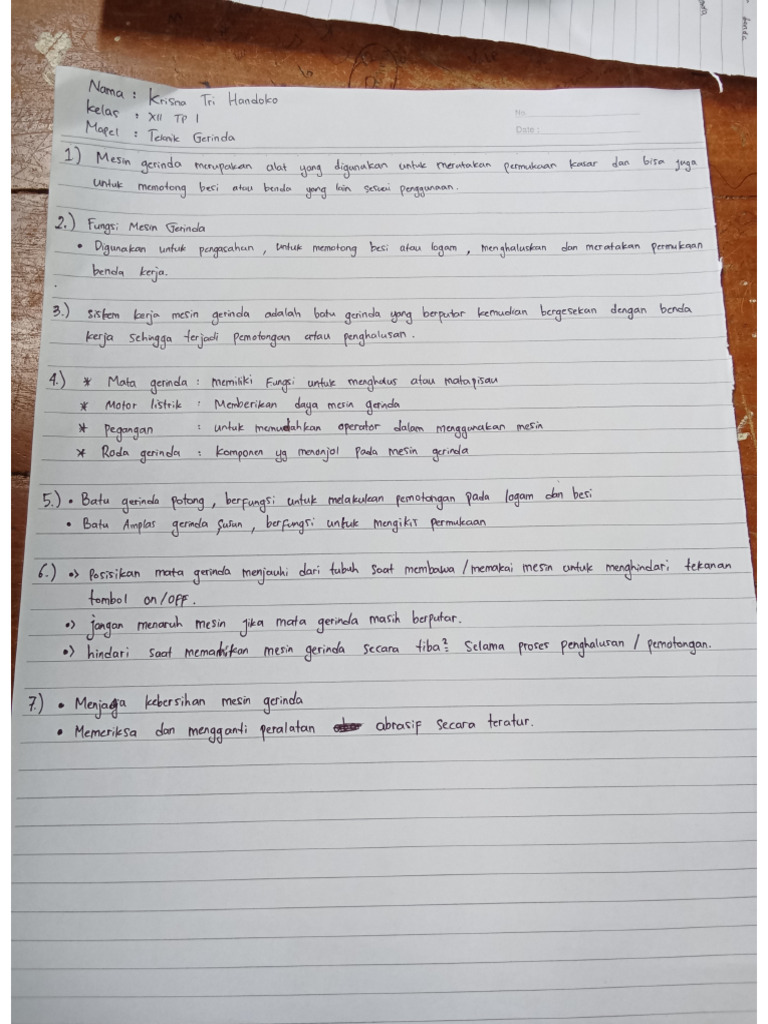 Nama : Krisna Tri Handoko
Kelas : XII TP 1
Mapel : Teknik Gerinda
No
Date :
1) Mesin gerinda merupakan alat yang digunakan untuk meratakan permukaan kasar dan bisa juga
untuk memotong besi atau benda yang lain sesuai penggunaan.
2.) Fungsi Mesin Gerinda
• Digunakan untuk pengasahan, untuk memotong besi atau logam, menghaluskan dan meratakan permukaan
benda kerja.
3.) Sistem kerja mesin gerinda adalah batu gerinda yang berputar kemudian bergesekan dengan benda
kerja sehingga terjadi pemotongan atau penghalusan.
4.) * Mata gerinda : memiliki fungsi untuk menghalus atau mata pisau
* Motor listrik : Memberikan daya mesin gerinda
* pegangan : untuk memudahkan operator dalam menggunakan mesin
* Roda gerinda : komponen yg menonjol pada mesin gerinda
5.) • Batu gerinda potong, berfungsi untuk melakukan pemotongan pada logam dan besi
• Batu Amplas gerinda susun, berfungsi untuk mengikis permukaan
6.) •> Posisikan mata gerinda menjauhi dari tubuh saat membawa/memakai mesin untuk menghindari tekanan
tombol on/OFF.
•> jangan menaruh mesin jika mata gerinda masih berputar.
•> hindari saat mematikan mesin gerinda secara tiba² selama proses penghalusan / pemotongan.
7.) • Menjaga kebersihan mesin gerinda
• Memeriksa dan mengganti peralatan abrasif secara teratur.